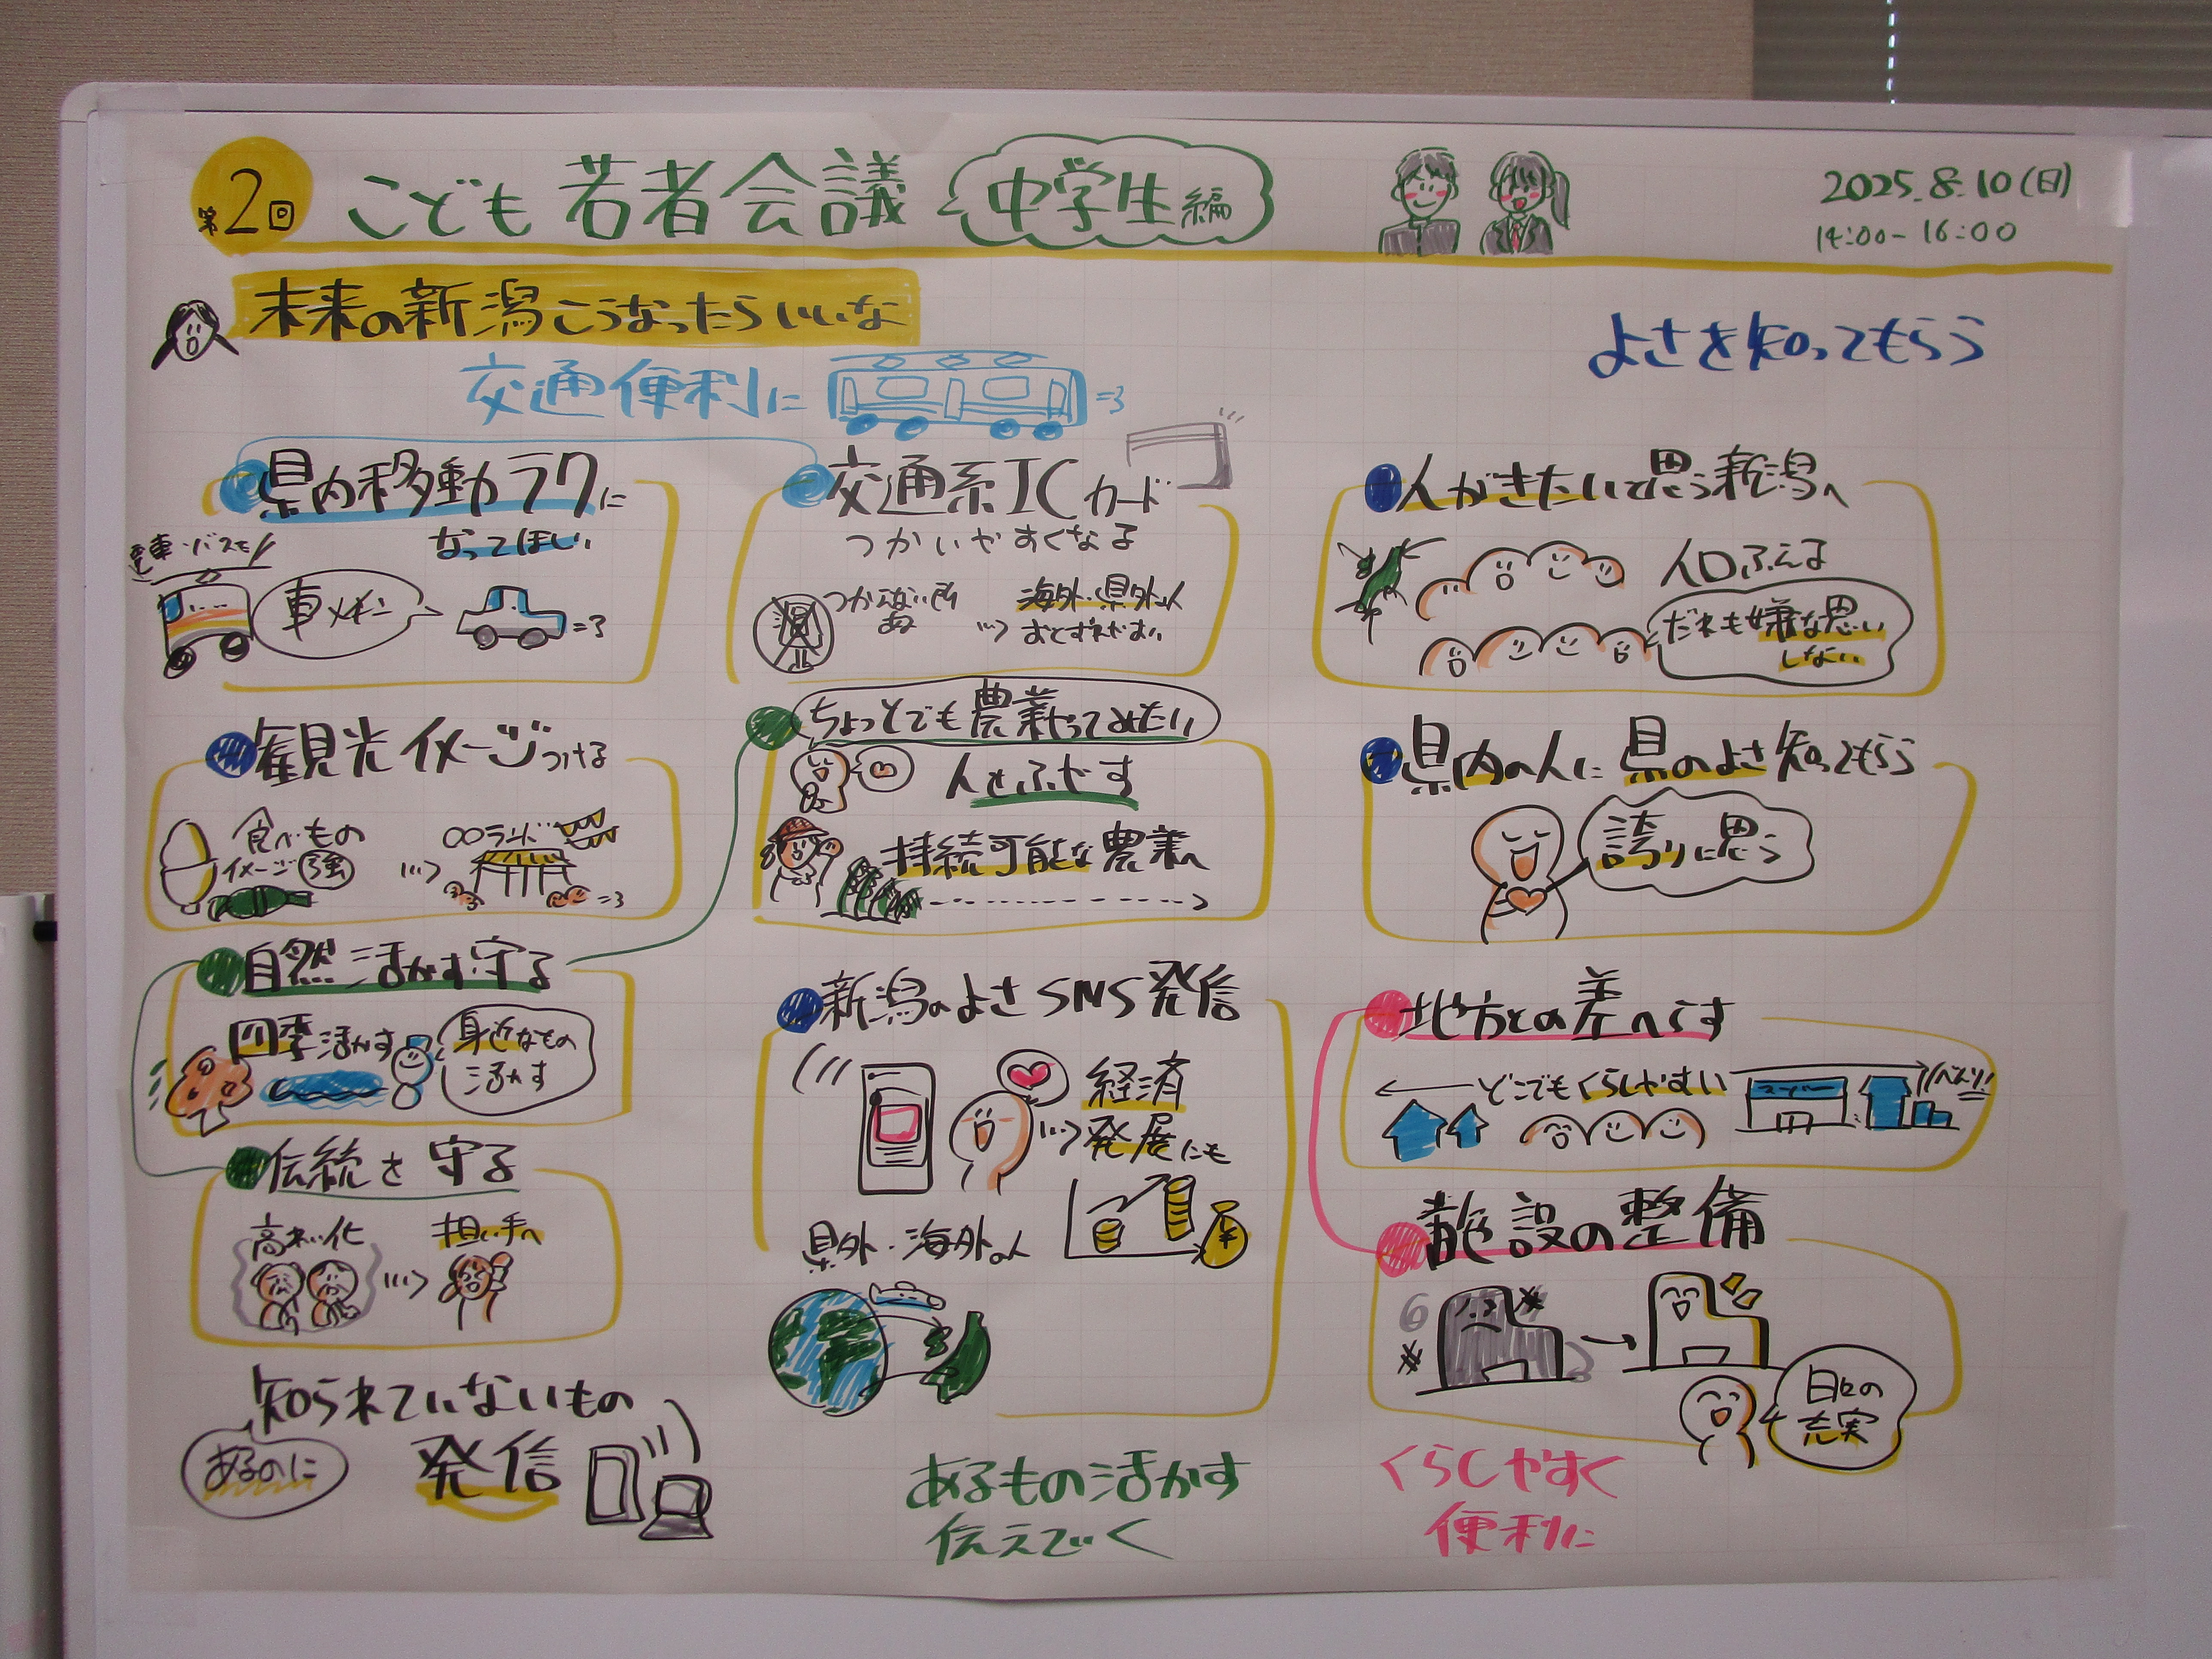 第2回
こども若者会議
中学生編
2025.8.10(日)
14:00-16:00
未来の新潟こうなったらいいな
交通便利に
よさを知ってもらう
県内移動ラクに
なってほしい
電車・バスも
車メイン
交通系ICカード
つかいやすくなる
つかえない所
ある
海外・県外の人
おとずれやすい
人がきたいと思う新潟へ
人口ふえる
だれも嫌な思い
しない
観光イメージつける
食べもの
イメージ強
〇〇ランド
ちょっとでも農業やってみたい
人をふやす
持続可能な農業へ
県内の人に県のよさ知ってもらう
誇りに思う
自然活かす守る
四季活かす
身近なもの
活かす
新潟のよさSNS発信
経済
発展にも
県外・海外の人
地方との差へらす
どこでもくらしやすい
スーパー
伝統を守る
高れい化
担い手へ
施設の整備
日々の
充実
知られていないもの
あるのに
発信
あるもの活かす
伝えていく
くらしやすく
便利に